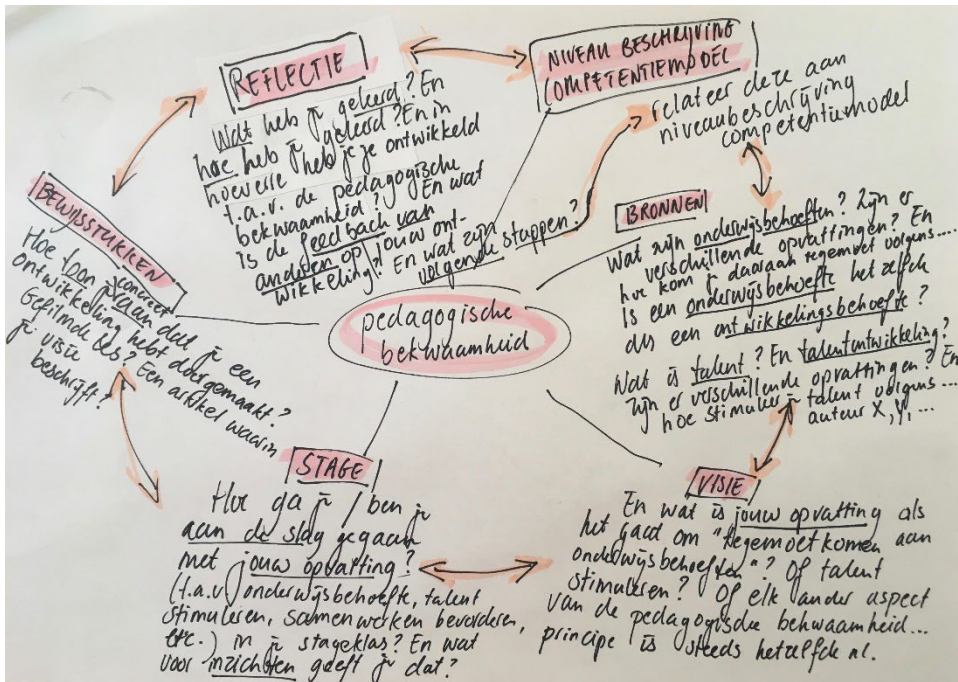 REFLECTIE
Wat heb je geleerd? En
hoe heb je geleerd? En in
hoeverre heb je je ontwikkeld
t.a.v. de pedagogische
bekwaamheid? En wat
is de feedback van
anderen op jouw ont-
wikkeling? En wat zijn
volgende stappen?
NIVEAU BESCHRIJVING
COMPETENTIEMODEL
relateer deze aan
niveaubeschrijving
competentiemodel
BRONNEN
Wat zijn onderwijsbehoeften? Zijn er
verschillende opvattingen? En
hoe kom je daaraan tegemoet volgens....
Is een onderwijsbehoefte hetzelfde
als een ontwikkelingsbehoefte?
Wat is talent? En talentontwikkeling?
Zijn er verschillende opvattingen? En
hoe stimuleer je talent volgens...
auteur X, Y, ...
BEWIJSSTUKKEN
Hoe toon je concreet aan dat je een
ontwikkeling hebt doorgemaakt?
Gefilmde les? Een artikel waarin
je visie
beschrijft?
pedagogische
bekwaamheid
STAGE
Hoe ga je / ben je
aan de slag gegaan
met jouw opvatting?
(t.a.v. onderwijsbehoefte, talent
stimuleren, samenwerken bevorderen,
etc.) in je stageklas? En wat
voor inzichten geeft je dat?
VISIE
En wat is jouw opvatting als
het gaat om "tegemoetkomen aan
onderwijsbehoeften"? Of talent
stimuleren? Of elk ander aspect
van de pedagogische bekwaamheid...
principe is steeds hetzelfde nl.